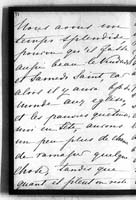 Nous avons un
temps splendide
pourvu qu'il fasse
aussi beau le Vendredi
et Samedi Saint, car
alors il y aura bpd
monde aux églises
et les pauvres quêteuses
auront un
peu plus de chance
de ramasser quelque
chose, tandis que
quand il pleut on reste